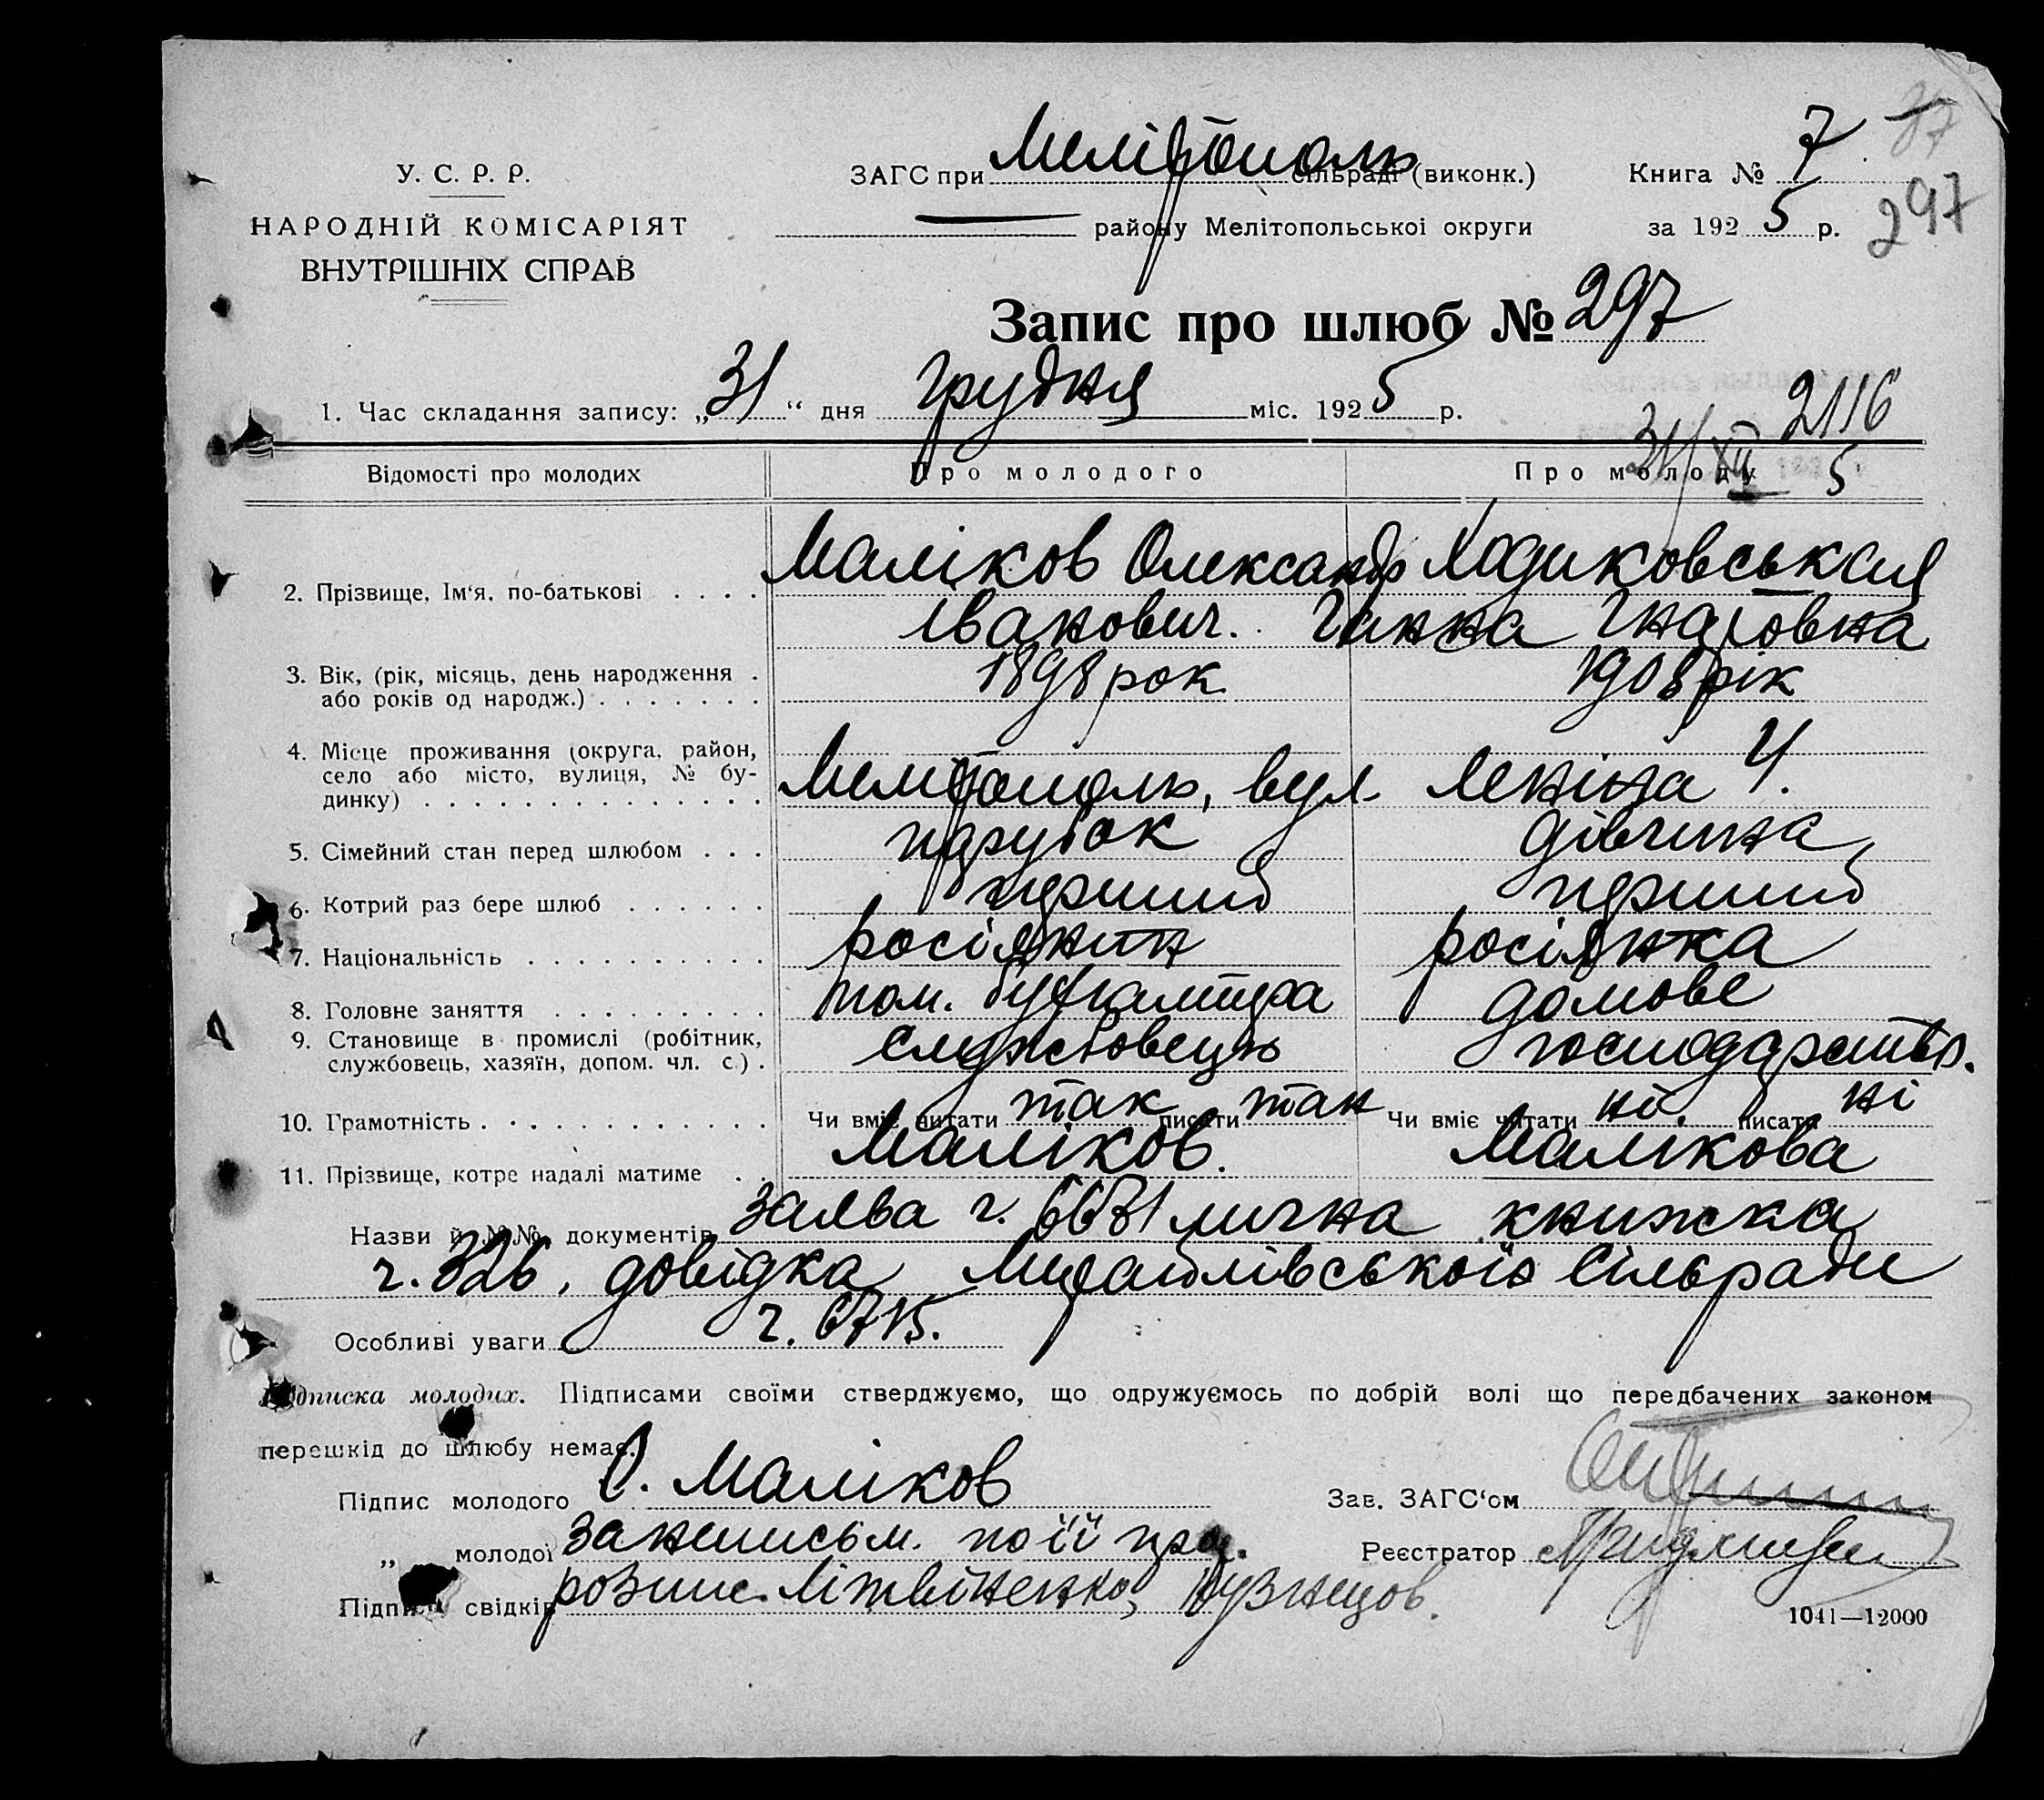 У. С. Р. Р.
НАРОДНІЙ КОМІСАРІЯТ
ВНУТРІШНІХ СПРАВ
ЗАГС при Мелітополь сільраді (виконк.)
району Мелітопольської округи
Книга № 7
за 1925 р.
297
Запис про шлюб № 297
1. Час складання запису: „31“ дня грудня міс. 1925 р.
2116
31/XII 5
Відомості про молодих Про молодого Про молоду
2. Прізвище, Ім‘я, по-батькові . . . . Маліков Олександр Ходиковськая
Іванович. Ганна Гнатовна
3. Вік, (рік, місяць, день народження . 1898 рок. 1908 рік
або років од народж.) . . . . . . .
4. Місце проживання (округа, район,
село або місто, вулиця, № бу- Мелітополь, вул. Леніна Ч.
динку) . . . . . . . . . . . . . .
5. Сімейний стан перед шлюбом . . . парубок дівчина
6. Котрий раз бере шлюб . . . . . . перший перший
7. Національність . . . . . . . . . . росіянин росіянка
8. Головне заняття . . . . . . . . . пом. бухгалтера домове
9. Становище в промислі (робітник, службовець господарств.
службовець, хазяїн, допом. чл. с.) .
10. Грамотність . . . . . . . . . . . . Чи вміє читати так писати так Чи вміє читати ні писати ні
11. Прізвище, котре надалі матиме . . Маліков. Малікова
Назви й №№ документів заява ч. 6631 лична книжка
ч. 326, довідка Михайлівської сільради
Особливі уваги ч. 6715.
Підписка молодих. Підписами своїми стверджуємо, що одружуємось по добрій волі що передбачених законом
перешкід до шлюбу немає.
Підпис молодого О. Маліков Зав. ЗАГС‘ом
„ молодої за неписьм. по її
Реєстратор
Підписи свідків Літвіненко, Кузнецов.
1041—12000